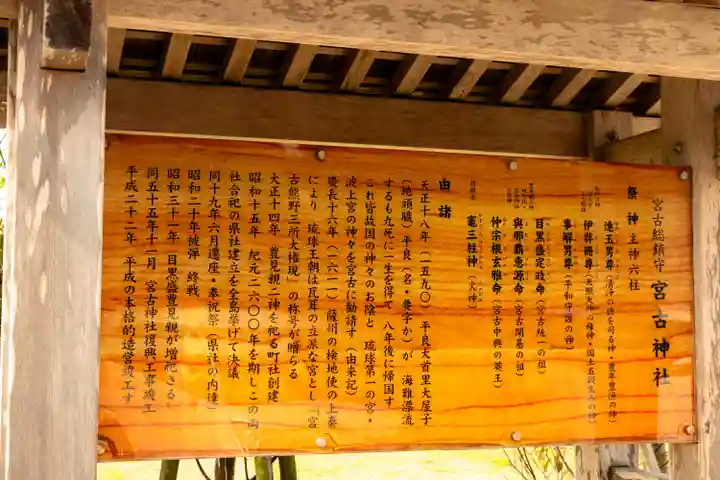 宮古総鎮守 宮古神社
祭神 主神六柱
速玉男尊(清浄の徳を司る神・豊年豊漁の神)
伊弉冊尊(天照大神の母神・国土五穀生みの神)
事解男尊(平和守護の神)
目黒盛定政命(宮古統一の祖)
與那覇恵源命(宮古開基の祖)
仲宗根玄雅命(宮古中興の英主)
竈三柱神(火神)
由緒
天正十八年(一五九〇) 平良大首里大屋子
(地頭職)平良(名・兼子か)が 海難漂流
するも九死に一生を得て 八年後に帰国す
これ皆故国の神々のお陰と 琉球第一の宮・
波上宮の神々を宮古に勧請す(由来記)
慶長十六年(一六一一)薩州の検地使の上奏
により 琉球王朝は瓦葺の立派な宮とし「宮
古熊野三所大権現」の称号が贈らる
大正十四年 豊見親二神を祀る町社創建
昭和十五年 紀元二六〇〇年を期しこの両
社合祀の県社建立を全島挙げて決議
同十九年六月遷座・奉祝祭(県社の内達)
昭和二十年被弾 終戦
昭和三十一年 目黒盛豊見親が増祀さる
同五十五年十一月 宮古神社復興工事竣工
平成二十二年 平成の本格的造営竣工す